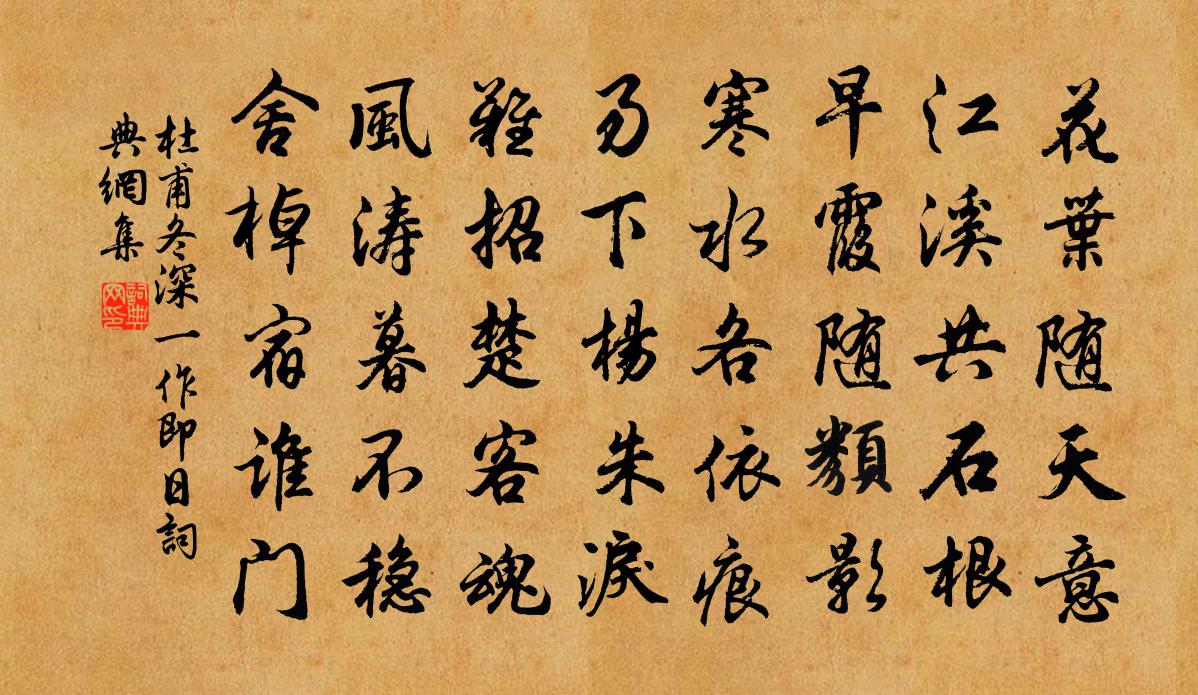 花葉随天意
江溪共石根
早霞随類影
寒水各依痕
易下楊朱淚
難招楚客魂
風濤暮不穩
舍棹宿誰門
杜甫冬深一作即日詞
典網集
詞典網印